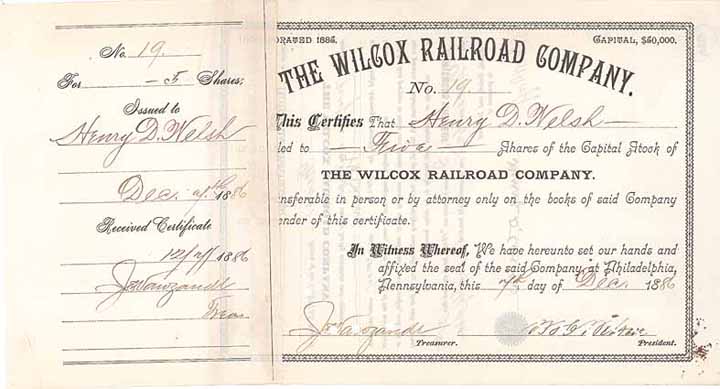 No. 19.
For — 5 Shares;
Issued to
Henry D. Welsh
Dec. 7th 1886
Received Certificate
12/7/ 1886
Treas
ORATED 1885. CAPITAL, $50,000.
THE WILCOX RAILROAD COMPANY.
No. 19.
This Certifies That Henry D. Welsh
led to — Five — Shares of the Capital Stock of
THE WILCOX RAILROAD COMPANY.
nsferable in person or by attorney only on the books of said Company
ender of this certificate.
In Witness Whereof, We have hereunto set our hands and
affixed the seal of the said Company, at Philadelphia,
Pennsylvania, this 7th day of Dec. 1886
Treasurer. President.